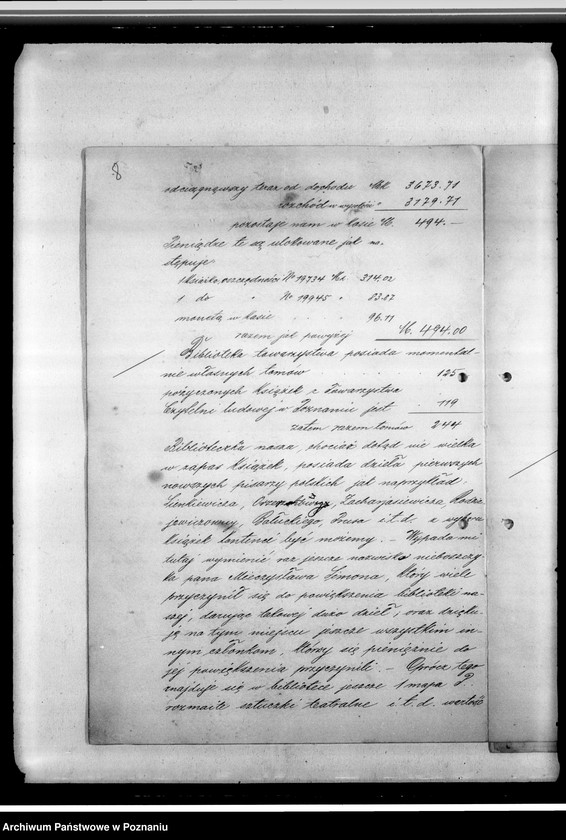 8
odciągnąwszy teraz od dochodu Mk 3673.71
rozchód w wysokoś: " 3179.71
pozostaje nam w kasie M. 494.—
Pieniądze te są ulokowane jak na-
stępuje:
1 książka oszczędności № 19734 Mk. 314.02
1 do " № 19945 " 83.87
monetą w kasie . . . 96.11
razem jak powyżej M. 494.00
Biblioteka towarzystwa posiada momental-
nie własnych tomów . . . . 125
pożyczonych książek z Towarzystwa
Czytelni ludowej w Poznaniu jest . 119
zatem razem tomów 244
Biblioteczka nasza, chociaż dotąd nie wielka
w zapas książek, posiada dzieła pierwszych
nowszych pisarzy polskich jak naprzykład:
Sienkiewicza, Zacharjasiewicza, Rodzie-
wiczówny, Bałuckiego, Prusa i.t.d. z wyboru
książek kontenci być możemy. — Wypada mi
tutaj wymienić raz jeszcze nazwisko nieboszczy-
ka pana Mieczysława Simona, który wiele
przyczynił się do powiększenia biblioteki na-
szej, darując takowej dużo dzieł, oraz dzięku-
ję na tym miejscu jeszcze wszystkim in-
nym członkom, którzy się pieniężnie do
jej powiększenia przyczynili. — Oprócz tego
znajduje się w bibliotece jeszcze 1 mapa i
rozmaite sztuczki teatralne i.t.d. wartość
Archiwum Państwowe w Poznaniu